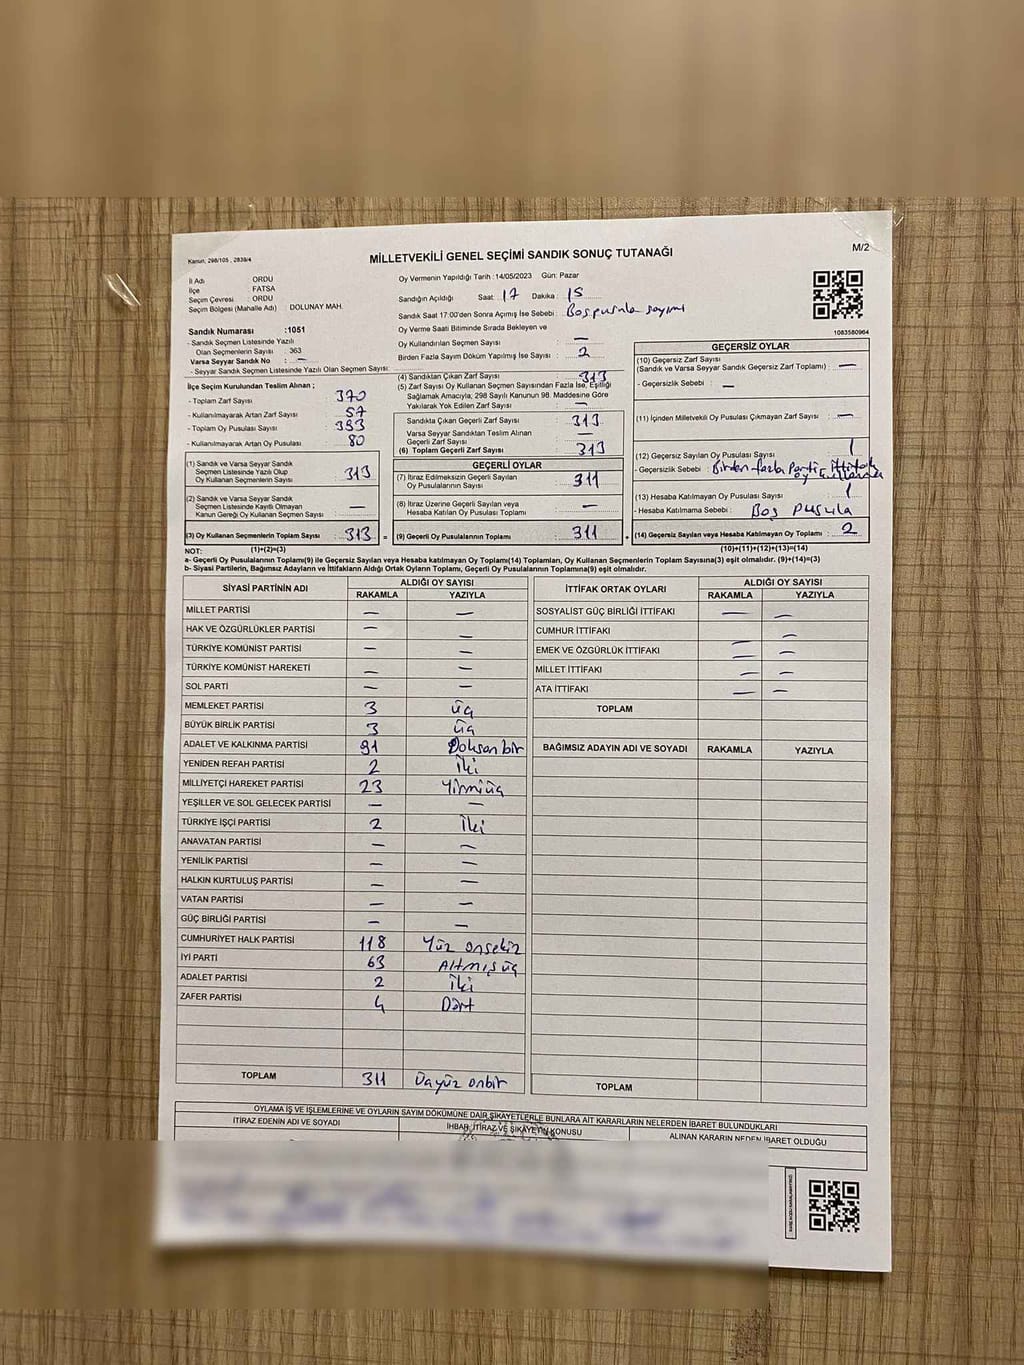 Kanun, 298/105 , 2839/4
MİLLETVEKİLİ GENEL SEÇİMİ SANDIK SONUÇ TUTANAĞI
M/2
İl Adı : ORDU
İlçe : FATSA
Seçim Çevresi : ORDU
Seçim Bölgesi (Mahalle Adı) : DOLUNAY MAH.
Sandık Numarası :1051
- Sandık Seçmen Listesinde Yazılı
Olan Seçmenlerin Sayısı : 363
Varsa Seyyar Sandık No : —
- Seyyar Sandık Seçmen Listesinde Yazılı Olan Seçmen Sayısı:
Oy Vermenin Yapıldığı Tarih : 14/05/2023 Gün: Pazar
Sandığın Açıldığı Saat : 17 Dakika : 15
Sandık Saat 17:00'den Sonra Açımış İse Sebebi : Boş pusula sayımı
Oy Verme Saati Bitiminde Sırada Bekleyen ve
Oy Kullandırılan Seçmen Sayısı : —
Birden Fazla Sayım Döküm Yapılmış İse Sayısı : 2
1083580964
İlçe Seçim Kurulundan Teslim Alınan ;
- Toplam Zarf Sayısı : 370
- Kullanılmayarak Artan Zarf Sayısı : 57
- Toplam Oy Pusulası Sayısı : 393
- Kullanılmayarak Artan Oy Pusulası : 80
(1) Sandık ve Varsa Seyyar Sandık
Seçmen Listesinde Yazılı Olup
Oy Kullanan Seçmenlerin Sayısı : 313
(2) Sandık ve Varsa Seyyar Sandık
Seçmen Listesinde Kayıtlı Olmayan
Kanun Gereği Oy Kullanan Seçmen Sayısı : —
(3) Oy Kullanan Seçmenlerin Toplam Sayısı : 313 =
(4) Sandıktan Çıkan Zarf Sayısı : 313
(5) Zarf Sayısı Oy Kullanan Seçmen Sayısından Fazla İse, Eşitliği
Sağlamak Amacıyla, 298 Sayılı Kanunun 98. Maddesine Göre
Yakılarak Yok Edilen Zarf Sayısı : —
Sandıkta Çıkan Geçerli Zarf Sayısı : 313
Varsa Seyyar Sandıktan Teslim Alınan
Geçerli Zarf Sayısı : —
(6) Toplam Geçerli Zarf Sayısı : 313
GEÇERLİ OYLAR
(7) İtiraz Edilmeksizin Geçerli Sayılan
Oy Pusulalarının Sayısı : 311
(8) İtiraz Üzerine Geçerli Sayılan veya
Hesaba Katılan Oy Pusulası Toplamı : —
(9) Geçerli Oy Pusulalarının Toplamı : 311 +
GEÇERSİZ OYLAR
(10) Geçersiz Zarf Sayısı
(Sandık ve Varsa Seyyar Sandık Geçersiz Zarf Toplamı) : —
- Geçersizlik Sebebi : —
(11) İçinden Milletvekili Oy Pusulası Çıkmayan Zarf Sayısı : —
(12) Geçersiz Sayılan Oy Pusulası Sayısı : 1
- Geçersizlik Sebebi : Birden fazla Parti, ittifak
oy kullanma
(13) Hesaba Katılmayan Oy Pusulası Sayısı : 1
- Hesaba Katılmama Sebebi : Boş pusula
(14) Geçersiz Sayılan veya Hesaba Katılmayan Oy Toplamı : 2
NOT: (1)+(2)=(3) (10)+(11)+(12)+(13)=(14)
a- Geçerli Oy Pusulalarının Toplamı(9) ile Geçersiz Sayılan veya Hesaba katılmayan Oy Toplamı(14) Toplamları, Oy Kullanan Seçmenlerin Toplam Sayısına(3) eşit olmalıdır. (9)+(14)=(3)
b- Siyasi Partilerin, Bağımsız Adayların ve İttifakların Aldığı Oyların Toplamı, Geçerli Oy Pusulalarının Toplamına(9) eşit olmalıdır.
SİYASİ PARTİNİN ADI ALDIĞI OY SAYISI
RAKAMLA YAZIYLA
MİLLET PARTİSİ — —
HAK VE ÖZGÜRLÜKLER PARTİSİ — —
TÜRKİYE KOMÜNİST PARTİSİ — —
TÜRKİYE KOMÜNİST HAREKETİ — —
SOL PARTİ — —
MEMLEKET PARTİSİ 3 üç
BÜYÜK BİRLİK PARTİSİ 3 üç
ADALET VE KALKINMA PARTİSİ 91 Doksan bir
YENİDEN REFAH PARTİSİ 2 İki
MİLLİYETÇİ HAREKET PARTİSİ 23 Yirmiüç
YEŞİLLER VE SOL GELECEK PARTİSİ — —
TÜRKİYE İŞÇİ PARTİSİ 2 İki
ANAVATAN PARTİSİ — —
YENİLİK PARTİSİ — —
HALKIN KURTULUŞ PARTİSİ — —
VATAN PARTİSİ — —
GÜÇ BİRLİĞİ PARTİSİ — —
CUMHURİYET HALK PARTİSİ 118 Yüz onsekiz
İYİ PARTİ 63 Altmış üç
ADALET PARTİSİ 2 İki
ZAFER PARTİSİ 4 Dört
TOPLAM 311 Üçyüz onbir
İTTİFAK ORTAK OYLARI ALDIĞI OY SAYISI
RAKAMLA YAZIYLA
SOSYALİST GÜÇ BİRLİĞİ İTTİFAKI — —
CUMHUR İTTİFAKI —
EMEK VE ÖZGÜRLÜK İTTİFAKI — —
MİLLET İTTİFAKI — —
ATA İTTİFAKI — —
TOPLAM
BAĞIMSIZ ADAYIN ADI VE SOYADI RAKAMLA YAZIYLA
TOPLAM
OYLAMA İŞ VE İŞLEMLERİNE VE OYLARIN SAYIM DÖKÜMÜNE DAİR ŞİKAYETLERLE BUNLARA AİT KARARLARIN NELERDEN İBARET BULUNDUKLARI
İTİRAZ EDENİN ADI VE SOYADI İHBAR, İTİRAZ VE ŞİKAYETİN KONUSU ALINAN KARARIN NEDEN İBARET OLDUĞU